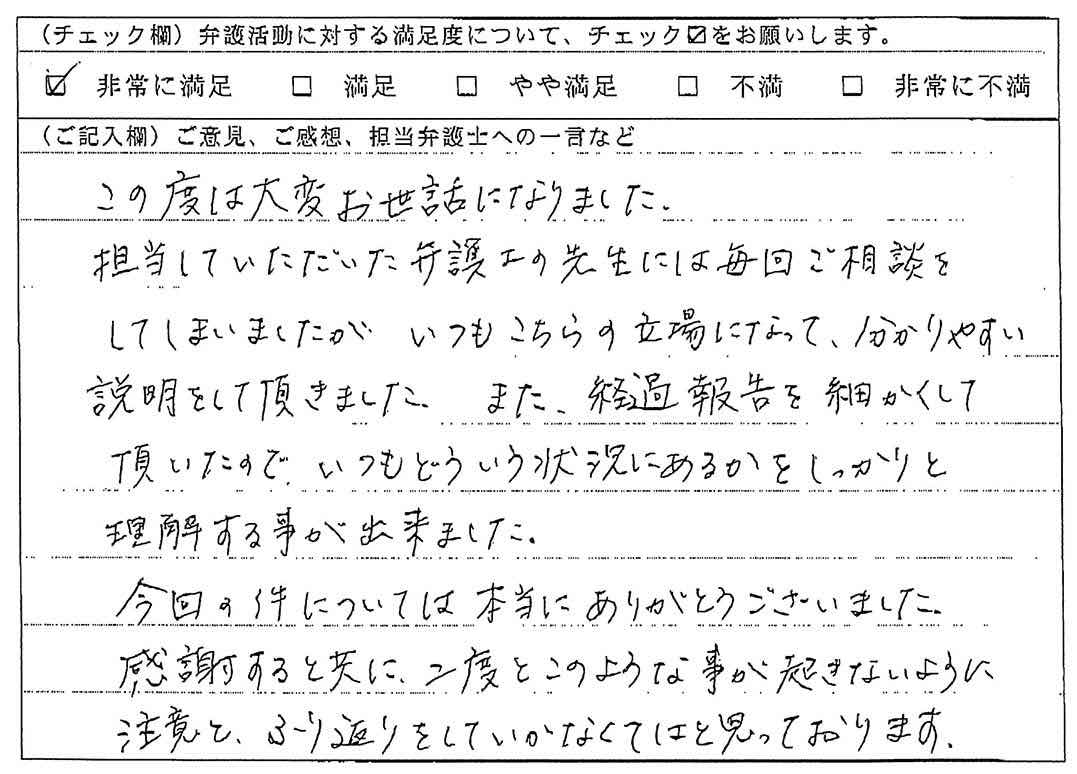 (チェック欄)弁護活動に対する満足度について、チェック☑をお願いします。
☑ 非常に満足 □ 満足 □ やや満足 □ 不満 □ 非常に不満
(ご記入欄)ご意見、ご感想、担当弁護士への一言など
この度は大変お世話になりました。
担当していただいた弁護士の先生には毎回ご相談を
してしまいましたが いつもこちらの立場になって、分かりやすい
説明をして頂きました。 また、経過報告を細かくして
頂いたので、いつもどういう状況にあるかをしっかりと
理解する事が出来ました。
今回の件については本当にありがとうございました。
感謝すると共に、二度とこのような事が起きないように
注意と、ふり返りをしていかなくてはと思っております。